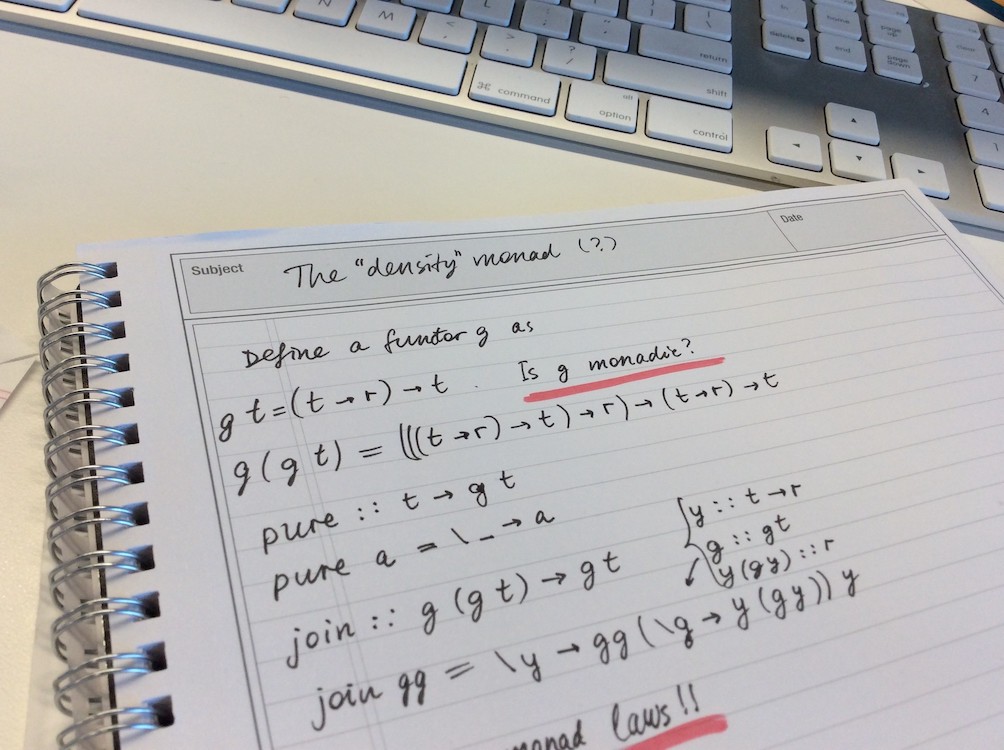 N M < > ? L : ; " ' { [ } ] | \
return
⌘ command
alt
option
shift
control
delete
home
end
page
down
clear
7
4
1
Subject
The "density" monad (?)
Date
Define a functor g as
g t = (t → r) → t . Is g monadic?
g (g t) = (((t → r) → t) → r) → (t → r) → t
pure :: t → g t
pure a = \_ → a
y :: t → r
g :: g t
y (g y) :: r
join :: g (g t) → g t
join gg = \y → gg (\g → y (g y)) y
monad laws!!